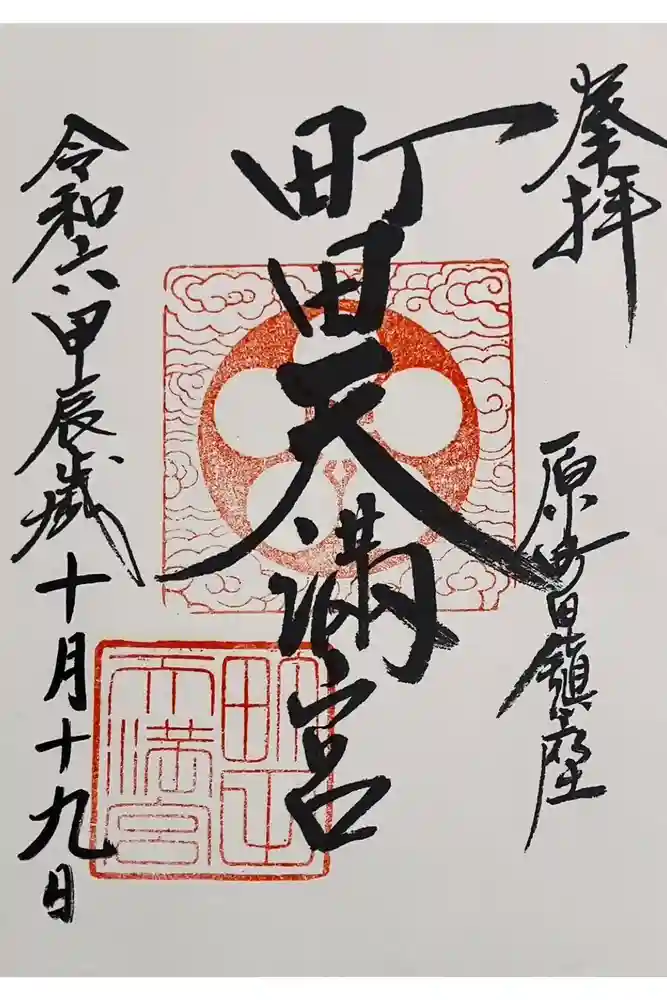 奉拝
原町田鎮座
町田天満宮
令和六甲辰歳十月十九日
町田
天満宮